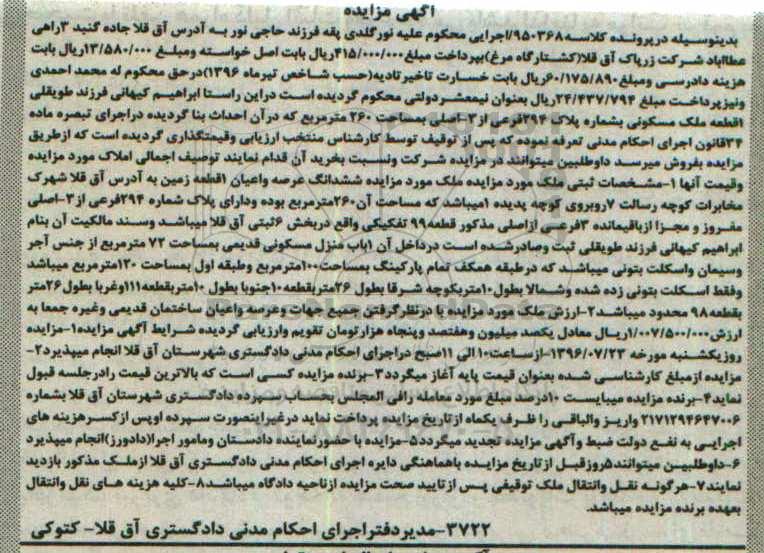 آگهی مزایده
بدینوسیله درپرونده کلاسه۹۵۰۳۶۸/اجرایی محکوم علیه نورگلدی یقه فرزند حاجی نور به آدرس آق قلا جاده گنبد ۳راهی
عطااباد شرکت زرپاک آق قلا(کشتارگاه مرغ)بپرداخت مبلغ۴۱۵/۰۰۰/۰۰۰ریال بابت اصل خواسته ومبلغ ۱۳/۵۸۰/۰۰۰ریال بابت
هزینه دادرسی ومبلغ۶۰/۱۷۵/۸۹۰ریال بابت خسارت تاخیرتادیه(حسب شاخص تیرماه ۱۳۹۶)درحق محکوم له محمد احمدی
ونیزپرداخت مبلغ ۲۴/۴۳۷/۷۹۴ریال بعنوان نیمعشردولتی محکوم گردیده است دراین راستا ابراهیم کیهانی فرزند طویقلی
۱قطعه ملک مسکونی بشماره پلاک ۲۹۴فرعی از۳-اصلی بمساحت ۲۶۰ مترمربع که درآن احداث بنا گردیده دراجرای تبصره ماده
۳۴قانون اجرای احکام مدنی تعرفه نموده که پس از توقیف توسط کارشناس منتخب ارزیابی وقیمتگذاری گردیده است که ازطریق
مزایده بفروش میرسد داوطلبین میتوانند در مزایده شرکت ونسبت بخرید آن قدام نمایند توصیف اجمالی املاک مورد مزایده
وقیمت آنها ۱-مشخصات ثبتی ملک مورد مزایده ملک مورد مزایده ششدانگ عرصه واعیان ۱قطعه زمین به آدرس آق قلا شهرک
مخابرات کوچه رسالت ۷روبروی کوچه پدیده ۱میباشد که مساحت آن۲۶۰مترمربع بوده ودارای پلاک شماره ۲۹۴فرعی از۳-اصلی
مفروز و مجزا ازباقیمانده ۳فرعی ازاصلی مذکور قطعه۹۹ تفکیکی واقع دربخش ۶ثبتی آق قلا میباشد وسند مالکیت آن بنام
ابراهیم کیهانی فرزند طویقلی ثبت وصادرشده است درداخل آن ۱باب منزل مسکونی قدیمی بمساحت ۷۲ مترمربع از جنس آجر
وسیمان واسکلت بتونی میباشد که درطبقه همکف تمام پارکینگ بمساحت۱۰۰مترمربع وطبقه اول بمساحت ۱۳۰مترمربع میباشد
وفقط اسکلت بتونی زده شده وشمالا بطول ۱۰متربکوچه شرقا بطول ۲۶متربقطعه۱۰۰جنوبا بطول ۱۰متربقطعه۱۱۱وغربا بطول۲۶متر
بقطعه۹۸ محدود میباشد۲-ارزش ملک مورد مزایده با درنظرگرفتن جمیع جهات وعرصه واعیان ساختمان قدیمی وغیره جمعا به
ارزش۱/۰۰۷/۵۰۰/۰۰۰ریال معادل یکصد میلیون وهفتصد وپنجاه هزارتومان تقویم وارزیابی گردیده شرایط آگهی مزایده۱-مزایده
روزیکشنبه مورخه ۱۳۹۶/۰۷/۲۳-ازساعت۱۰الی ۱۱صبح دراجرای احکام مدنی دادگستری شهرستان آق قلا انجام میپذیرد۲-
مزایده ازمبلغ کارشناسی شده بعنوان قیمت پایه آغاز میگردد۳-برنده مزایده کسی است که بالاترین قیمت رادرجلسه قبول
نماید۴-برنده مزایده میبایست ۱۰درصد مبلغ مورد معامله رافی المجلس بحساب سپرده دادگستری شهرستان آق قلا بشماره
۲۱۷۱۲۹۴۶۴۷۰۰۶ واریز والباقی را ظرف یکماه ازتاریخ مزایده پرداخت نماید درغیراینصورت سپرده اوپس ازکسرهزینه های
اجرایی به نفع دولت ضبط وآگهی مزایده تجدید میگردد۵-مزایده با حضورنماینده دادستان ومامور اجرا(دادورز)انجام میپذیرد
۶-داوطلبین میتوانند۵روزقبل ازتاریخ مزایده باهماهنگی دایره اجرای احکام مدنی دادگستری آق قلا ازملک مذکور بازدید
نمایند۷-هرگونه نقل وانتقال ملک توقیفی پس ازتایید صحت مزایده ازناحیه دادگاه میباشد۸-کلیه هزینه های نقل وانتقال
بعهده برنده مزایده میباشد.
۳۷۲۲-مدیردفتراجرای احکام مدنی دادگستری آق قلا- کتوکی